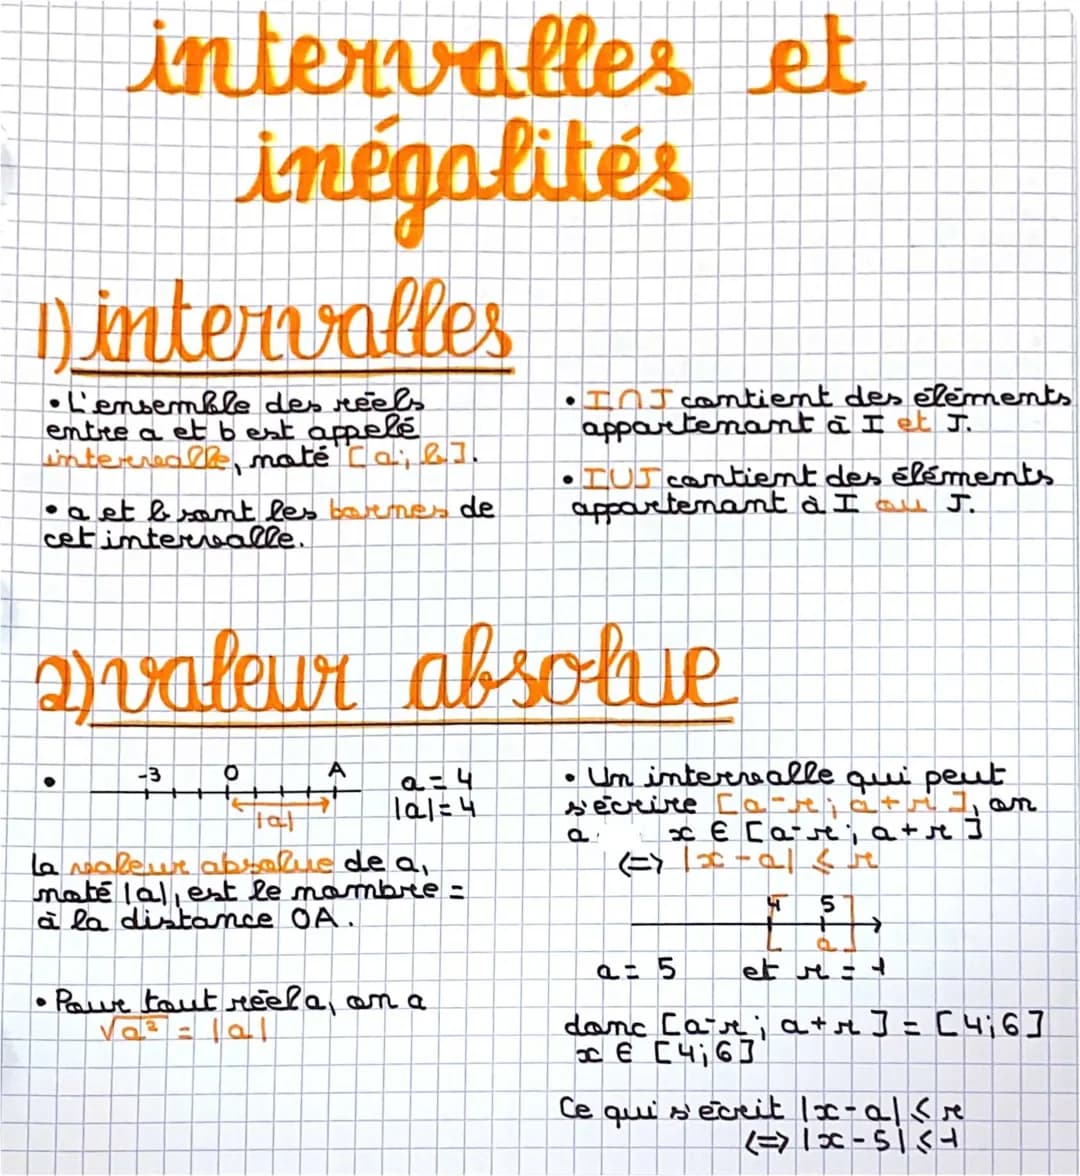 intervalles et
inégalités
1) intervalles
• L'ensemble des réels
entre a et b est appelé
intervalle, noté [a; b].
• a et b sont les bornes de
cet intervalle.
• I∩J contient des éléments
appartenant à I et J.
• I∪J contient des éléments
appartenant à I ou J.
2) valeur absolue
• -3 0 A
|a|
a = 4
|a| = 4
la valeur absolue de a,
noté |a|, est le nombre =
à la distance OA.
• Pour tout réel a, on a
√a² = |a|
• Un intervalle qui peut
s'écrire [a-r; a+r], on
a: x ∈ [a-r; a+r]
<=> |x-a| ⩽ r
4 5
a
a = 5 et r = 1
donc [a-r; a+r] = [4;6]
x ∈ [4;6]
Ce qui s'écrit |x-a| ⩽ r
<=> |x-5| ⩽ 1